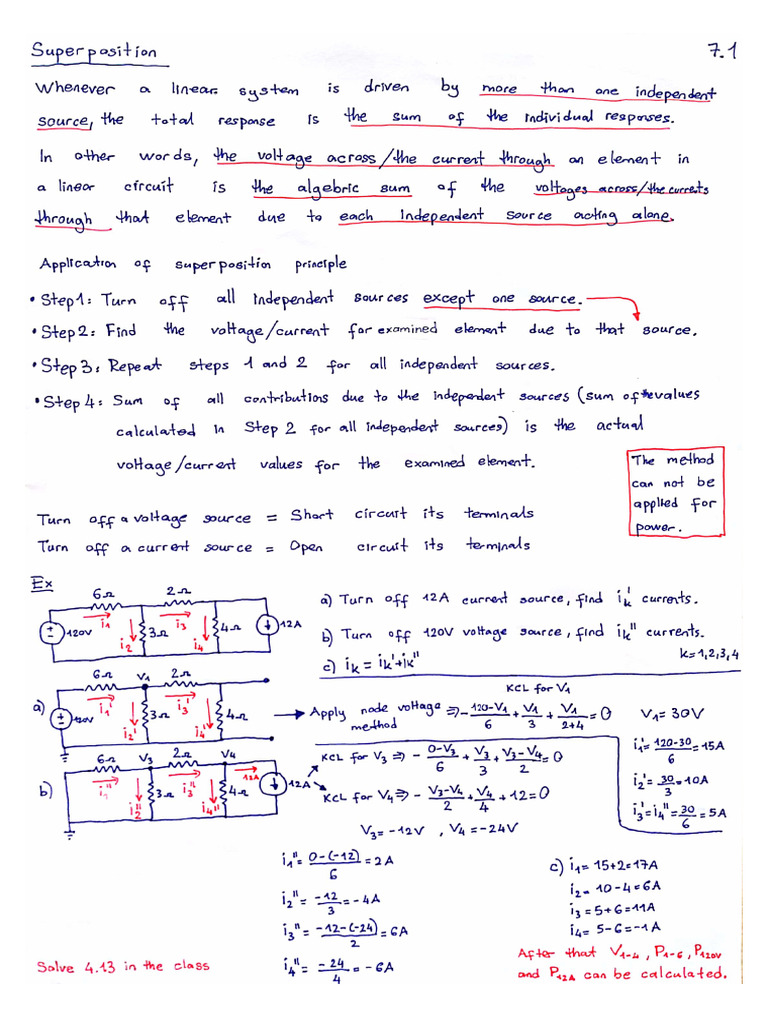 Superposition 7.1
Whenever a linear system is driven by more than one independent
source, the total response is the sum of the individual responses.
In other words, the voltage across/the current through an element in
a linear circuit is the algebric sum of the voltages across/the currents
through that element due to each independent source acting alone.
Application of superposition principle
• Step 1: Turn off all independent sources except one source.
• Step 2: Find the voltage/current for examined element due to that source.
• Step 3: Repeat steps 1 and 2 for all independent sources.
• Step 4: Sum of all contributions due to the independent sources (sum of the values
calculated in Step 2 for all independent sources) is the actual
voltage/current values for the examined element.
The method
can not be
applied for
power.
Turn off a voltage source = Short circuit its terminals
Turn off a current source = Open circuit its terminals
Ex
6Ω 2Ω
i1 i3
120V i2 3Ω i4 4Ω 12A
a) Turn off 12A current source, find ik' currents.
b) Turn off 120V voltage source, find ik'' currents.
c) ik = ik' + ik'' k=1,2,3,4
a)
6Ω V1 2Ω
i1' i3'
120V i2' 3Ω i4' 4Ω
Apply node voltage
method
KCL for V1
⇒ - (120-V1)/6 + V1/3 + V1/(2+4) = 0
V1 = 30V
i1' = (120-30)/6 = 15A
i2' = 30/3 = 10A
i3' = i4'' = 30/6 = 5A
b)
6Ω V3 2Ω V4
i1'' i3'' 12A
i2'' 3Ω i4'' 4Ω 12A
KCL for V3 ⇒ - (0-V3)/6 + V3/3 + (V3-V4)/2 = 0
KCL for V4 ⇒ - (V3-V4)/2 + V4/4 + 12 = 0
V3 = -12V , V4 = -24V
i1'' = (0-(-12))/6 = 2A
i2'' = -12/3 = -4A
i3'' = (-12-(-24))/2 = 6A
i4'' = -24/4 = -6A
c) i1 = 15+2 = 17A
i2 = 10-4 = 6A
i3 = 5+6 = 11A
i4 = 5-6 = -1A
Solve 4.13 in the class
After that V1-4, P1-6, P120V
and P12A can be calculated.